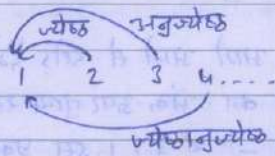 ज्येष्ठ अनुज्येष्ठ
1 2 3 4....
ज्येष्ठानुज्येष्ठ